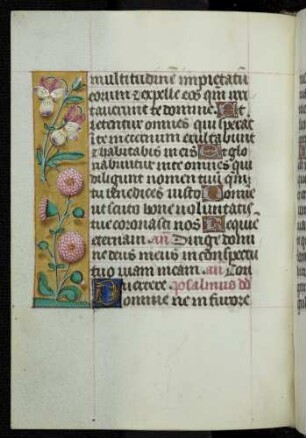 multitudinē impietatū
eorum expelle eos qm̄ irri
tauerunt te domine Et
letentur omnes qui sperāt
ī te in eternum exultabunt
& habitabis in eis Et glo
riabuntur in te omnes qui
diligunt nomen tuū qm̄
tu benedices iusto Domie
ut scuto bone voluntatis
tue coronasti nos Requie
eternam an Dirige domi
ne deus meus in conspectu
tuo uiam meam an Con
uertere psalmus dd
Domine ne in furore